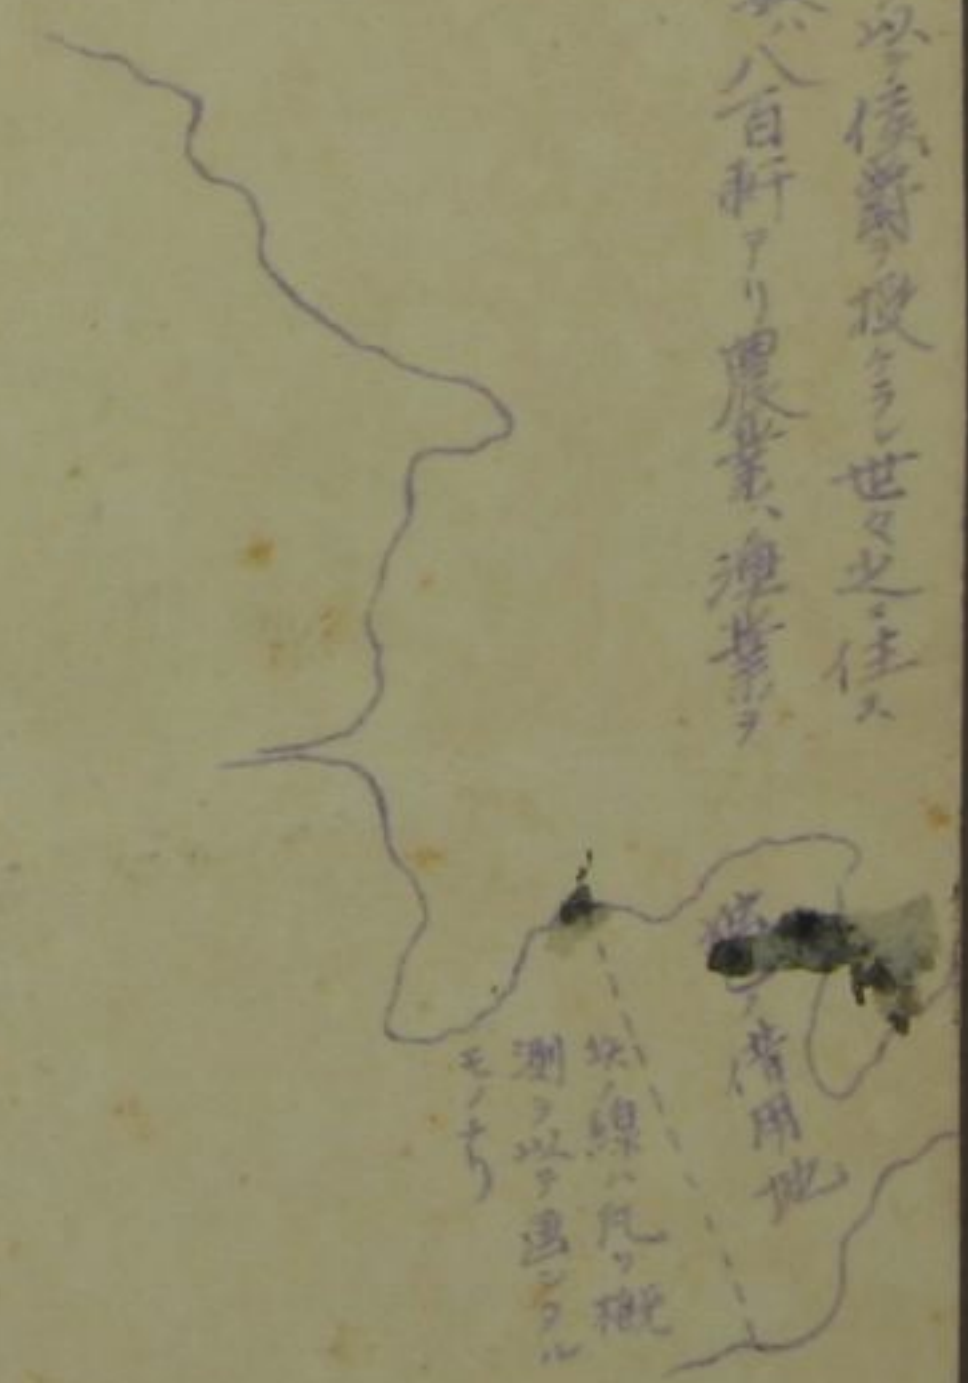 以テ侯爵ヲ授ケラレ世々之ニ住ス
八百軒アリ農業ハ漁業ヲ
ノ借用地
此ノ線ハ凡ソ概
測ヲ以テ画シタル
モノナリ